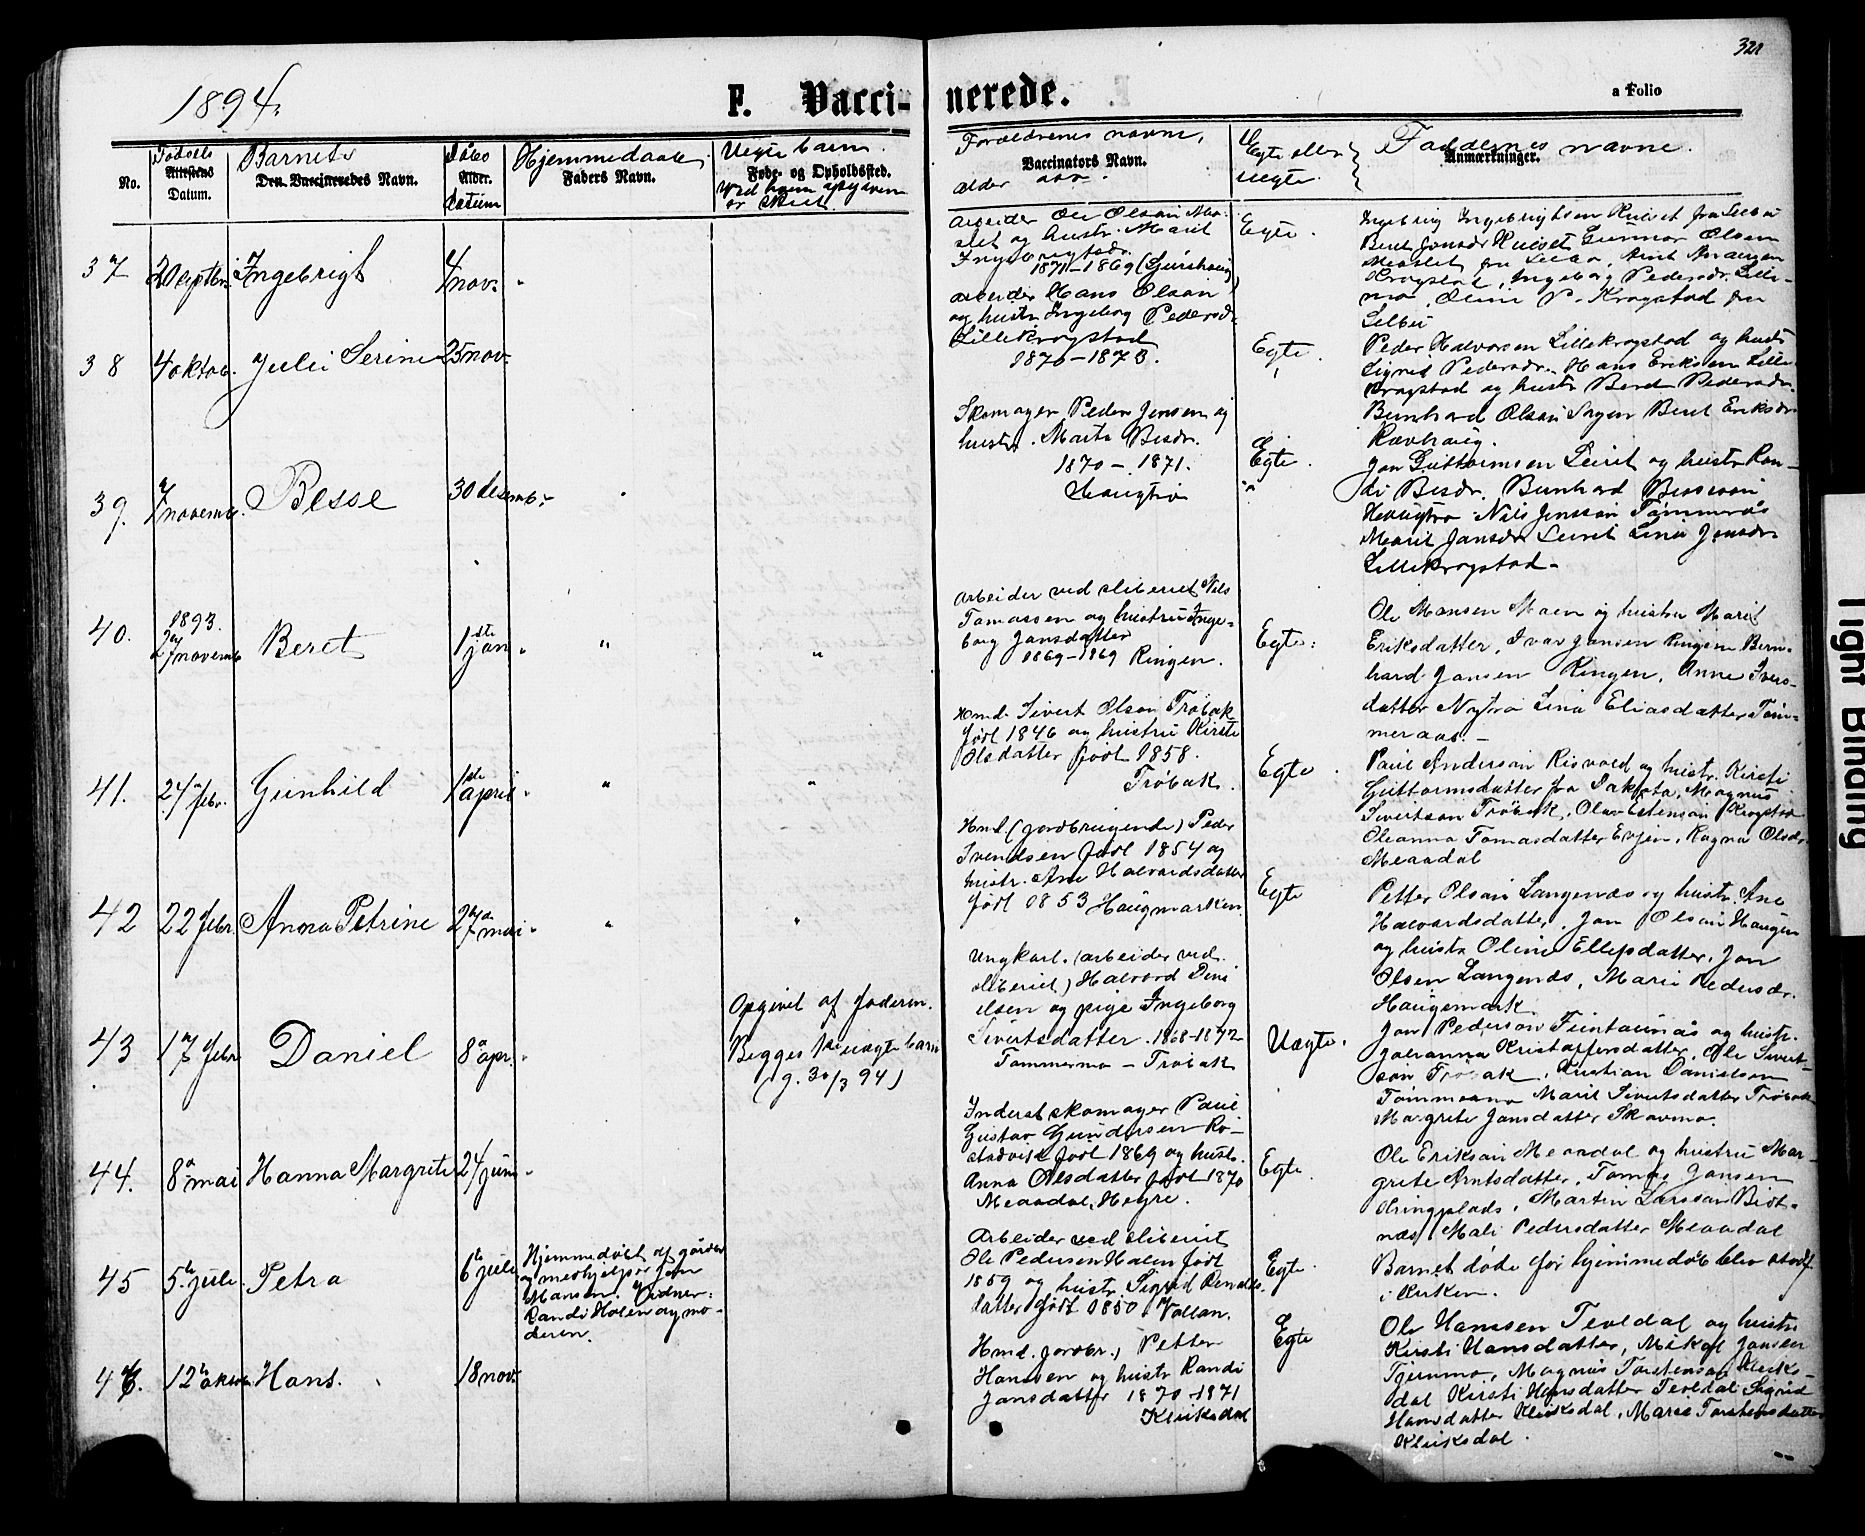 321
1894.
F. Vacci- nerede.
a Folio
No.
Fødsels
Attestens
Datum.
Barnets
Den Vaccineredes Navn.
Døbs
Alder.
datum
Hjemmedaab
Faders Navn.
Uegte barn
Føde- og Opholdssted.
Forældrenes navne,
Vaccinators Navn.
alder
Egte eller
uegte.
Faddernes navne.
Anmærkninger.
37
Ingebrigt
4 nov.
Arbeider Ole Olsen Mo-
slet og hustr. Marit
Ingebrigtsdr.
1871-1869
Egte.
Ingebrig Ingebrigtsen fra Selbu
Beret Jonsdr Gunnar Olsen
Moslet fra Selbu, Arnt
Krogstad, Ingeborg Pedersdr. Lille-
mo, Oline P. Krogstad fra
Selbu
38
4 oktob.
Juli Serine
25 nov.
Arbeider Hans Olsen
og hustr Ingeborg Pedersdr.
Lillekrogstad
1870-1873.
Egte.
Peder Halvorsen Lillekrogstad og hustr
Sigrid Pedersdr. Hans Eriksen Lille-
krogstad og hustr Beret Pedersdr.
Bernhard Olsen Beret Eriksdr
Ravhaug.
39.
7 novemb.
Besse
30 desemb.
Skomager Peder Jensen og
hustr. Marta Besdr.
1870-1871.
Haugtrø
Egte.
Jon Guttormsen Leiret og hustr Ran-
di Besdr. Bernhard Bessesen
Haugtrø Nils Jenssen Tømmerås
Marit Jansdr Leiret Lina Jonsdr
Lillekrogstad-
40.
1893.
27 novemb
Beret
1ste jan.
Arbeider ved sliberiet Nils
Tomassen og hustru Inge-
borg Jansdatter
1869-1869 Ringen.
Egte:
Ole Monsen Moen og hustru Marit
Eriksdatter, Ivar Jansen Ringen, Bern-
hard Jansen Ringen, Anne Ivers-
datter Nytrø Lina Eliasdatter Tøm-
meraas.-
41.
24 febr.
Gunhild
1ste april
Hmd. Sivert Olsen Trøbak
født 1846 og hustru Kirsti
Olsdatter født 1858.
Trøbak.
Egte.
Paul Andersen Risvold og hustr. Kirsti
Guttormsdatter fra Dakota, Magnus
Sivertsen Trøbak, Olav Estensen Krogstad
Oleanna Tomasdatter Evjen, Ragna Olsdr.
Meaadal
42
22 febr.
Anna Petrine
27 mai
Hmd. (jordbrugende) Peder
Svendsen født 1854 og
hustr. Ane Halvordsdatter
født 1853 Haugmarken.
Egte
Petter Olsen Langenæs og hustr. Ane
Halvordsdatter, Jon Olsen Haugen
og hustr Oline Ellefsdatter. Jon
Olsen Langenæs, Marie Pedersdr.
Haugemark
43
17 febr
Daniel
8 apr.
Opgivet af faderen.
Begges 1ste uegte barn
(g. 30/3 94)
Ungkarl. (arbeider ved
sliberiet) Halvord Dani
elsen og pige Ingeborg
Sivertsdatter. 1868-1872
Tømmermo - Trøbak
Uegte.
Jon Pederson og hustr.
Johanna Kristoffersdatter, Ole Sivert-
sen Trøbak, Kristian Danielsen
Tømmermo Marit Sivertsdatter Trøbak
Margrete Jansdatter Skavmo.
44.
8 mai
Hanna Margrete
24 juni
Inderst skomager Paul
Gustav Gundersen Ro-
stadvik født 1869 og hustr.
Anna Olsdatter født 1870
Meaadal, Hegre.
Egte
Ole Eriksen Meaadal og hustru Mar-
grete Arntsdatter, Tomas Jansen
Ringplads, Martin Larsen Biot-
næs Mali Pedersdatter Meaadal
45
5te juli
Petra
6te juli
Hjemmedøbt af gårdbr
og medhjelper Jon
Monsen. Vidner:
Randi Holen og mo-
deren.
Arbeider ved sliberiet
Ole Pedersen Holen født
1859 og hustr. Sigrid
datter født 1850 Vollan.
Egte.
Barnet døde før hjemmedøb blev stadf.
i kirken.
46.
12te oktob.
Hans.
18 nov.
Hmd. jordbr.) Petter
Hansen og hustr Randi
Jansdatter 1870-1871
Kluksdal
Egte
Ole Hanssen Tevldal og hustr
Kirsti Hansdatter, Mikal Jansen
Tjernmo, Magnus Torstensen Kluks-
dal Kirsti Hansdatter Tevldal Sigrid
Hansdatter Kluksdal, Marit Torstensdatter
Kluksdal.
Tight Binding